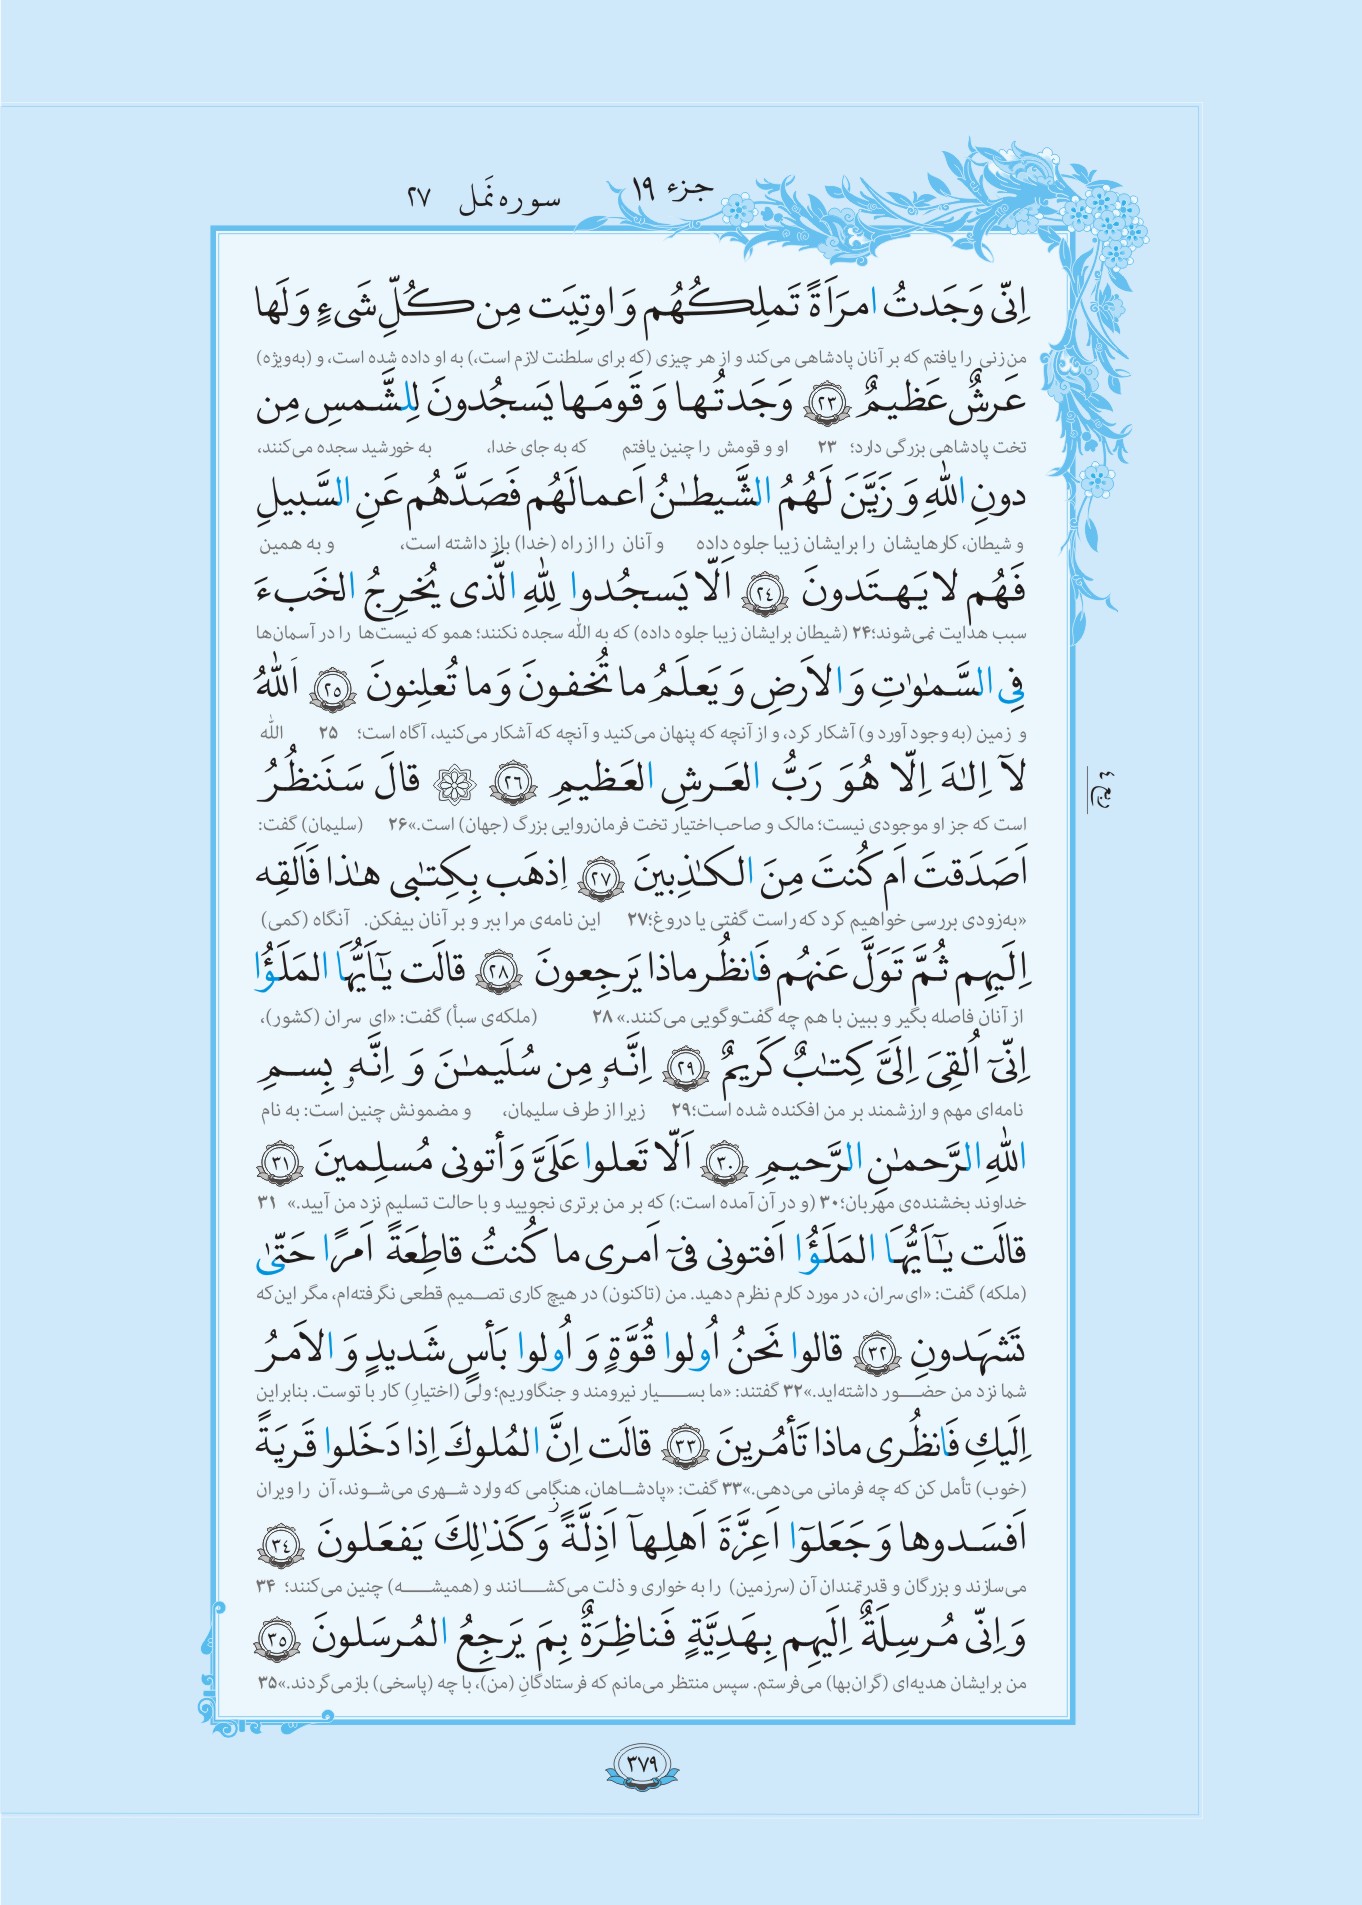 جزء ۱۹
سوره نَمل ۲۷
اِنّی وَجَدتُ امرَاَةً تَملِکُهُم وَ اوتِیَت مِن کُلِّ شَیءٍ وَ لَها
من زنی را یافتم که بر آنان پادشاهی می‌کند و از هر چیزی (که برای سلطنت لازم است،) به او داده شده است، و (به‌ویژه)
عَرشٌ عَظیمٌ ﴿۲۳﴾ وَجَدتُها وَ قَومَها یَسجُدونَ لِلشَّمسِ مِن
تخت پادشاهی بزرگی دارد؛ ۲۳ او و قومش را چنین یافتم که به جای خدا، به خورشید سجده می‌کنند،
دونِ اللهِ وَ زَیَّنَ لَهُمُ الشَّیطـٰنُ اَعمالَهُم فَصَدَّهُم عَنِ السَّبیلِ
و شیطان، کارهایشان را برایشان زیبا جلوه داده و آنان را از راه (خدا) باز داشته است، و به همین
فَهُم لا یَهتَدونَ ﴿۲۴﴾ اَلّا یَسجُدوا لِلّٰهِ الَّذی یُخرِجُ الخَبءَ
سبب هدایت نمی‌شوند؛۲۴ (شیطان برایشان زیبا جلوه داده) که به الله سجده نکنند؛ همو که نیست‌ها را در آسمان‌ها
فِی السَّمٰوٰتِ وَ الاَرضِ وَ یَعلَمُ ما تُخفونَ وَ ما تُعلِنونَ ﴿۲۵﴾ اَللّٰهُ
و زمین (به وجود آورد و) آشکار کرد، و از آنچه که پنهان می‌کنید و آنچه که آشکار می‌کنید، آگاه است؛ ۲۵ الله
لآ اِلـٰهَ اِلّا هُوَ رَبُّ العَرشِ العَظیمِ ﴿۲۶﴾ ۞ قالَ سَنَنظُرُ
است که جز او موجودی نیست؛ مالک و صاحب‌اختیار تخت فرمان‌روایی بزرگ (جهان) است.»۲۶ (سلیمان) گفت:
ربع ٤
اَصَدَقتَ اَم کُنتَ مِنَ الکـٰذِبینَ ﴿۲۷﴾ اِذهَب بِکِتـٰبی هـٰذا فَاَلقِه
«به‌زودی بررسی خواهیم کرد که راست گفتی یا دروغ؛۲۷ این نامه‌ی مرا ببر و بر آنان بیفکن. آنگاه (کمی)
اِلَیهِم ثُمَّ تَوَلَّ عَنهُم فَانظُر ماذا یَرجِعونَ ﴿۲۸﴾ قالَت یـٰٓاَیُّهَا المَلَؤُا
از آنان فاصله بگیر و ببین با هم چه گفت‌وگویی می‌کنند.»۲۸ (ملکه‌ی سبأ) گفت: «ای سران (کشور)،
اِنّیٓ اُلقِیَ اِلَیَّ کِتـٰبٌ کَریمٌ ﴿۲۹﴾ اِنَّهٗ مِن سُلَیمـٰنَ وَ اِنَّهٗ بِسمِ
نامه‌ای مهم و ارزشمند بر من افکنده شده است؛۲۹ زیرا از طرف سلیمان، و مضمونش چنین است: به نام
اللهِ الرَّحمـٰنِ الرَّحیمِ ﴿۳۰﴾ اَلّا تَعلوا عَلَیَّ وَ أتونی مُسلِمینَ ﴿۳۱﴾
خداوند بخشنده‌ی مهربان؛۳۰ (و در آن آمده است:) که بر من برتری نجویید و با حالت تسلیم نزد من آیید.» ۳۱
قالَت یـٰٓاَیُّهَا المَلَؤُا اَفتونی فیٓ اَمری ما کُنتُ قاطِعَةً اَمرًا حَتّیٰ
(ملکه) گفت: «ای سران، در مورد کارم نظرم دهید. من (تاکنون) در هیچ کاری تصمیم قطعی نگرفته‌ام، مگر این‌که
تَشهَدونِ ﴿۳۲﴾ قالوا نَحنُ اُولوا قُوَّةٍ وَ اُولوا بَأسٍ شَدیدٍ وَ الاَمرُ
شما نزد من حضور داشته‌اید.»۳۲ گفتند: «ما بسیار نیرومند و جنگاوریم؛ ولی (اختیارِ) کار با توست. بنابراین
اِلَیكِ فَانظُری ماذا تَأمُرینَ ﴿۳۳﴾ قالَت اِنَّ المُلوكَ اِذا دَخَلوا قَریَةً
(خوب) تأمل کن که چه فرمانی می‌دهی.»۳۳ گفت: «پادشاهان، هنگامی که وارد شهری می‌شوند، آن را ویران
اَفسَدوها وَ جَعَلوٓا اَعِزَّةَ اَهلِهآ اَذِلَّةً ز وَ کَذٰلِكَ یَفعَلونَ ﴿۳۴﴾
می‌سازند و بزرگان و قدرتمندان آن (سرزمین) را به خواری و ذلت می‌کشانند و (همیشه) چنین می‌کنند؛ ۳۴
وَ اِنّی مُرسِلَةٌ اِلَیهِم بِهَدِیَّةٍ فَناظِرَةٌ بِمَ یَرجِعُ المُرسَلونَ ﴿۳۵﴾
من برایشان هدیه‌ای (گران‌بها) می‌فرستم. سپس منتظر می‌مانم که فرستادگانِ (من)، با چه (پاسخی) بازمی‌گردند.»۳۵
۳۷۹